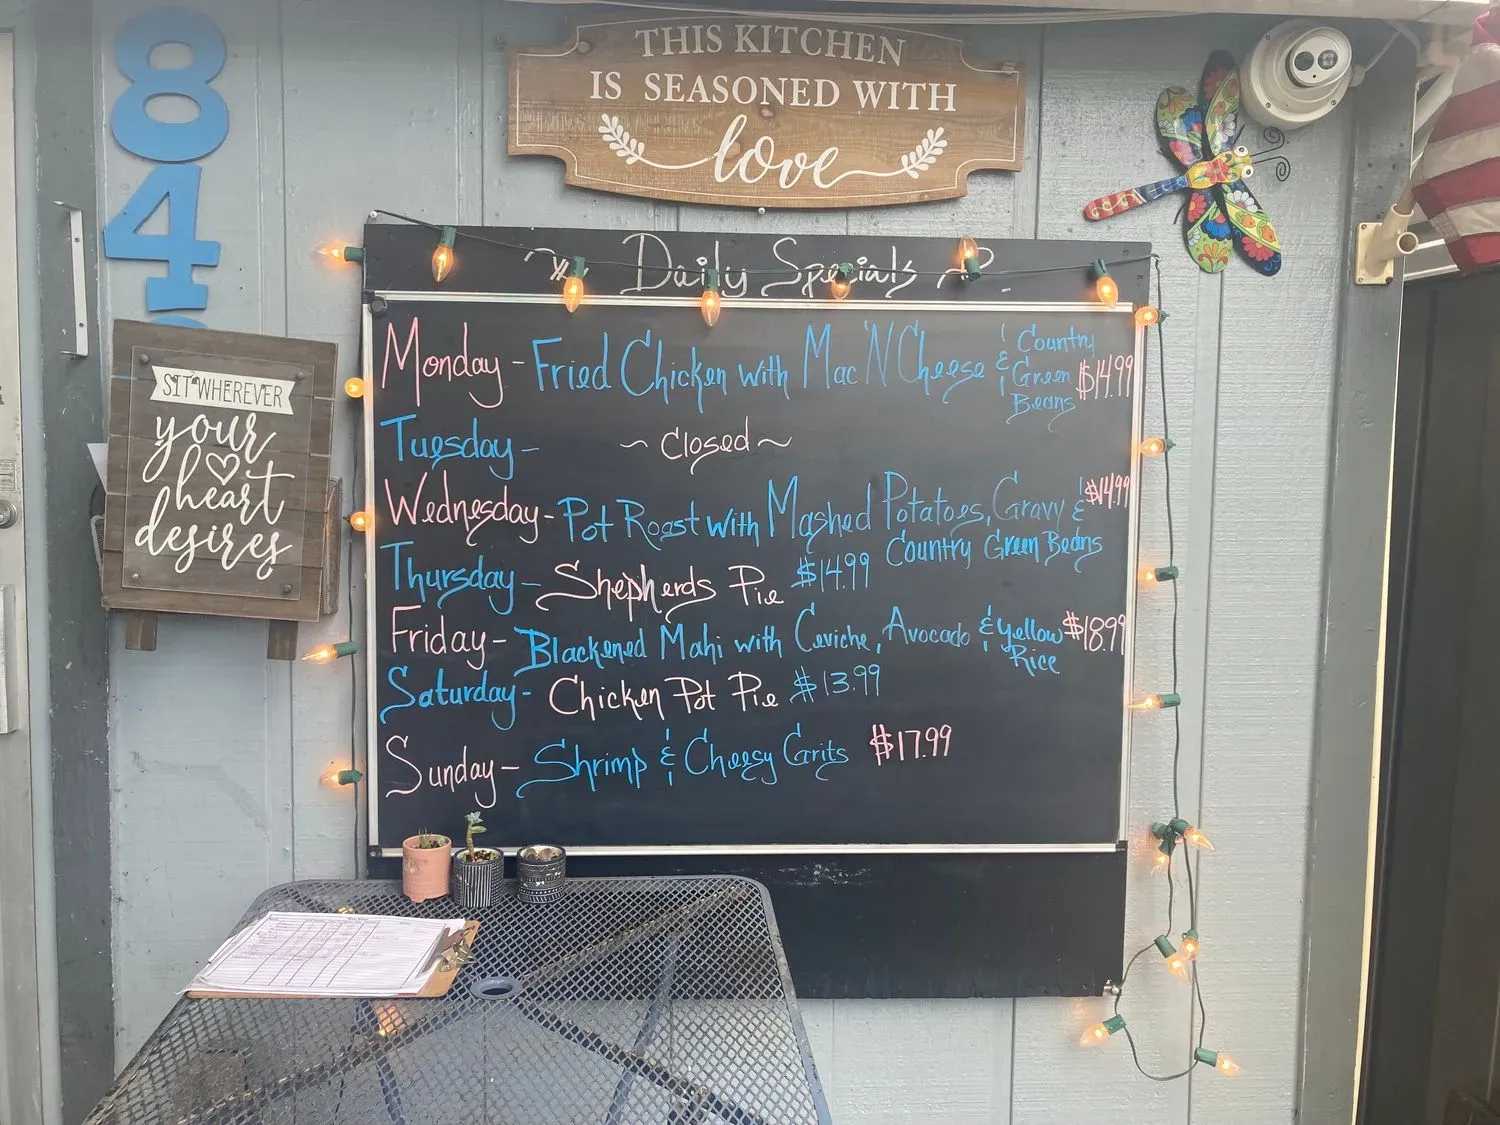 THIS KITCHEN
IS SEASONED WITH
love
84
SIT WHEREVER
your
heart
desires
Daily Specials
Monday - Fried Chicken with Mac 'N Cheese & Country Green Beans $14.99
Tuesday - ~ Closed ~
Wednesday - Pot Roast with Mashed Potatoes, Gravy & $14.99
Country Green Beans
Thursday - Shepherds Pie $14.99
Friday - Blackened Mahi with Ceviche, Avocado & Yellow Rice $18.99
Saturday - Chicken Pot Pie $13.99
Sunday - Shrimp & Cheesy Grits $17.99